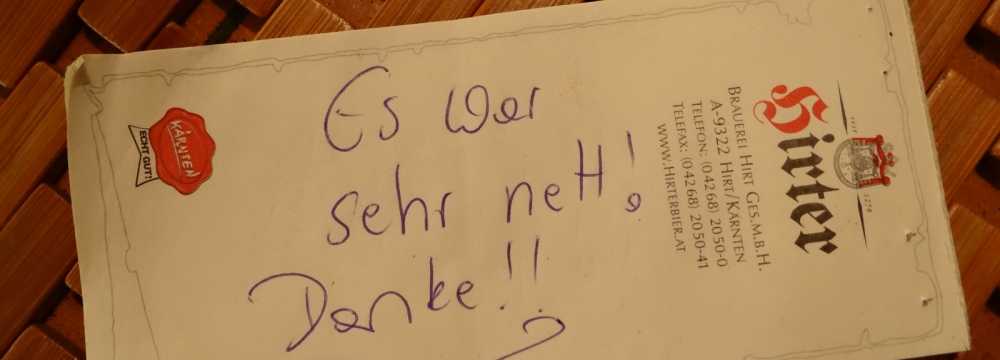 Es war
sehr nett!
Danke!!
Hirter
BRAUEREI HIRT GES.M.B.H.
A-9322 HIRT/KÄRNTEN
TELEFON: (04268) 2050-0
TELEFAX: (04268) 2050-41
WWW.HIRTERBIER.AT
KÄRNTEN
ECHT GUT!
1270